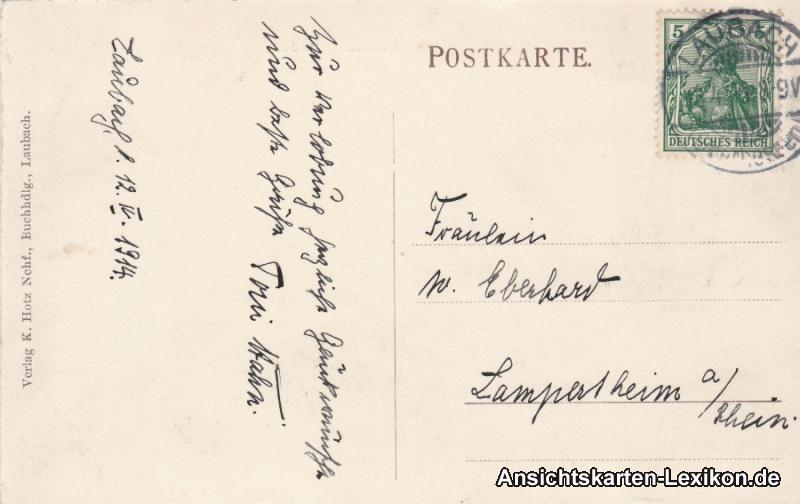 POSTKARTE.
5
DEUTSCHES REICH
LAUBACH
Laubach, d. 12. IV. 1914.
Zur Verlobung herzliche Glückwünsche
und beste Grüße Toni Hahn.
Fräulein
W. Eberhard
Lampertheim a/
Rhein.
Verlag K. Hotz Nchf., Buchhdlg., Laubach.
Ansichtskarten-Lexikon.de